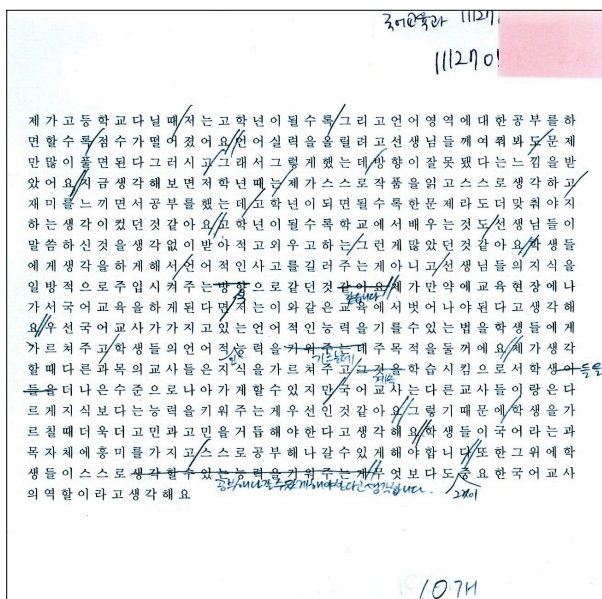 국어교육과 11127
1112701
제가고등학교다닐때저는고학년이될수록그리고언어영역에대한공부를하
면할수록점수가떨어졌어요언어실력을올릴려고선생님들께여쭤봐도문제
만많이풀면된다그러시고그래서그렇게했는데방향이잘못됐다는느낌을받
았어요지금생각해보면저학년때는제가스스로작품을읽고스스로생각하고
재미를느끼면서공부를했는데고학년이되면될수록한문제라도더맞춰야지
하는생각이컸던것같아요고학년이될수록학교에서배우는것도선생님들이
말씀하신것을생각없이받아적고외우고하는그런게많았던것같아요학생들
에게생각을하게해서언어적인사고를길러주는게아니고선생님들의지식을
일방적으로주입시켜주는방향으로같던것같아요제가만약에교육현장에나
갔습니다
가서국어교육을하게된다면저는이와같은교육에서벗어나야된다고생각해
요우선국어교사가가지고있는언어적인능력을기를수있는법을학생들에게
가르쳐주고학생들의언어적능력을키워주는데주목적을둘꺼에요제가생각
인
기르는데
할때다른과목의교사들은지식을가르쳐주고그것을학습시킴으로서학생들을
들을더나은수준으로나아가게할수있지만국어교사는다른교사들이랑은다
르게지식보다는능력을키워주는게우선인것같아요그렇기때문에학생을가
르칠때더욱더고민과고민을거듭해야한다고생각해요학생들이국어라는과
목자체에흥미를가지고스스로공부해나갈수있게해야합니다또한그위에학
생들이스스로생각할수있는능력을키워주는게무엇보다도중요한국어교사
공부해나갈수있게해야한다고생각합니다.
의역할이라고생각해요
10개